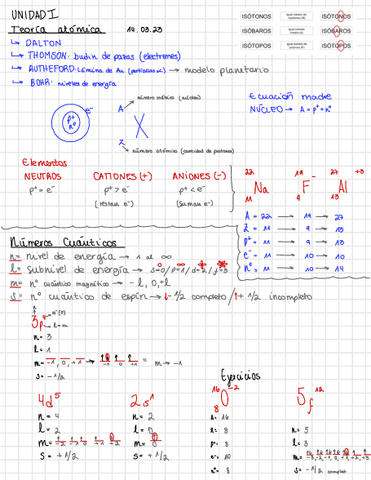 UNIDAD I
Teoría atómica 14.03.23
↳ DALTON
↳ THOMSON: budin de pasas (electrones)
↳ RUTHEFORD: Lámina de Au (partículas α) → modelo planetario
↳ BOHR: niveles de energía
ISÓTONOS ISÓTONOS
ISÓBAROS ISÓBAROS
ISÓTOPOS ISÓTOPOS
número másico (núcleo)
e⁻
p⁺
n⁰
A
X
Z
número atómico (cantidad de protones)
Ecuación madre
NÚCLEO → A = p⁺ + n⁰
Elementos
NEUTROS CATIONES (+) ANIONES (-)
p⁺ = e⁻ p⁺ > e⁻ p⁺ < e⁻
(restan e⁻) (suman e⁻)
22 19 27 +3
Na F⁻ Al
11 9 13
A = 22 → 19 → 27
Z = 11 → 9 → 13
p⁺ = 11 → 9 → 13
e⁻ = 11 → 10 → 10
n⁰ = 11 → 10 → 14
Números Cuánticos
n = nivel de energía → 1 al ∞
l = subnivel de energía → s=0 / p=1 / d=2 / f=3
m = nº cuántico magnético → -l, 0, +l
s = nº cuántico de espín → -1/2 completo / + 1/2 incompleto
3p
n = 3
l = 1
m = -1, 0, +1 → -1 0 +1 = m → -1
s = -1/2
Ejercicios
4d⁵ 2s¹ 16 O -2 8 5f 12
n = 4 n = 2 A = 16 n = 5
l = 2 l = 0 Z = 8 l = 3
m = -2 -1 0 +1 +2 m = 0 p⁺ = 8 m = -3 -2 -1 0 +1 +2 +3
s = + 1/2 s = + 1/2 e⁻ = 10 s = - 1/2 completo
n⁰ = 8